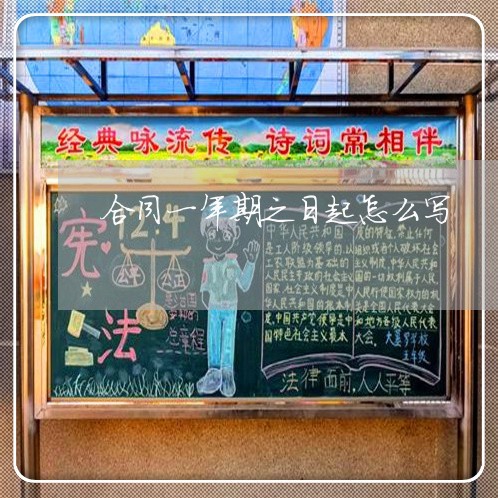 经典咏流传 诗词常相伴
合同一年期之日起怎么写
宪法
12.4
公平 公正
总章程
中华人民共和国
是工人阶级领导的,以
工农联盟为基础的
人民民主专政的社会主义
国家,社会主义制度是中
华人民共和国的根本制
度,中国共产党领导是中
国特色社会主义最本
质的特征,禁止任何
组织或者个人破坏社会
主义制度,中华人民共和
国的一切权利属于人民,
人民行使国家权力的机
关是全国人民代表大会
和地方各级人民代表
大会。
五年级
法律面前,人人平等